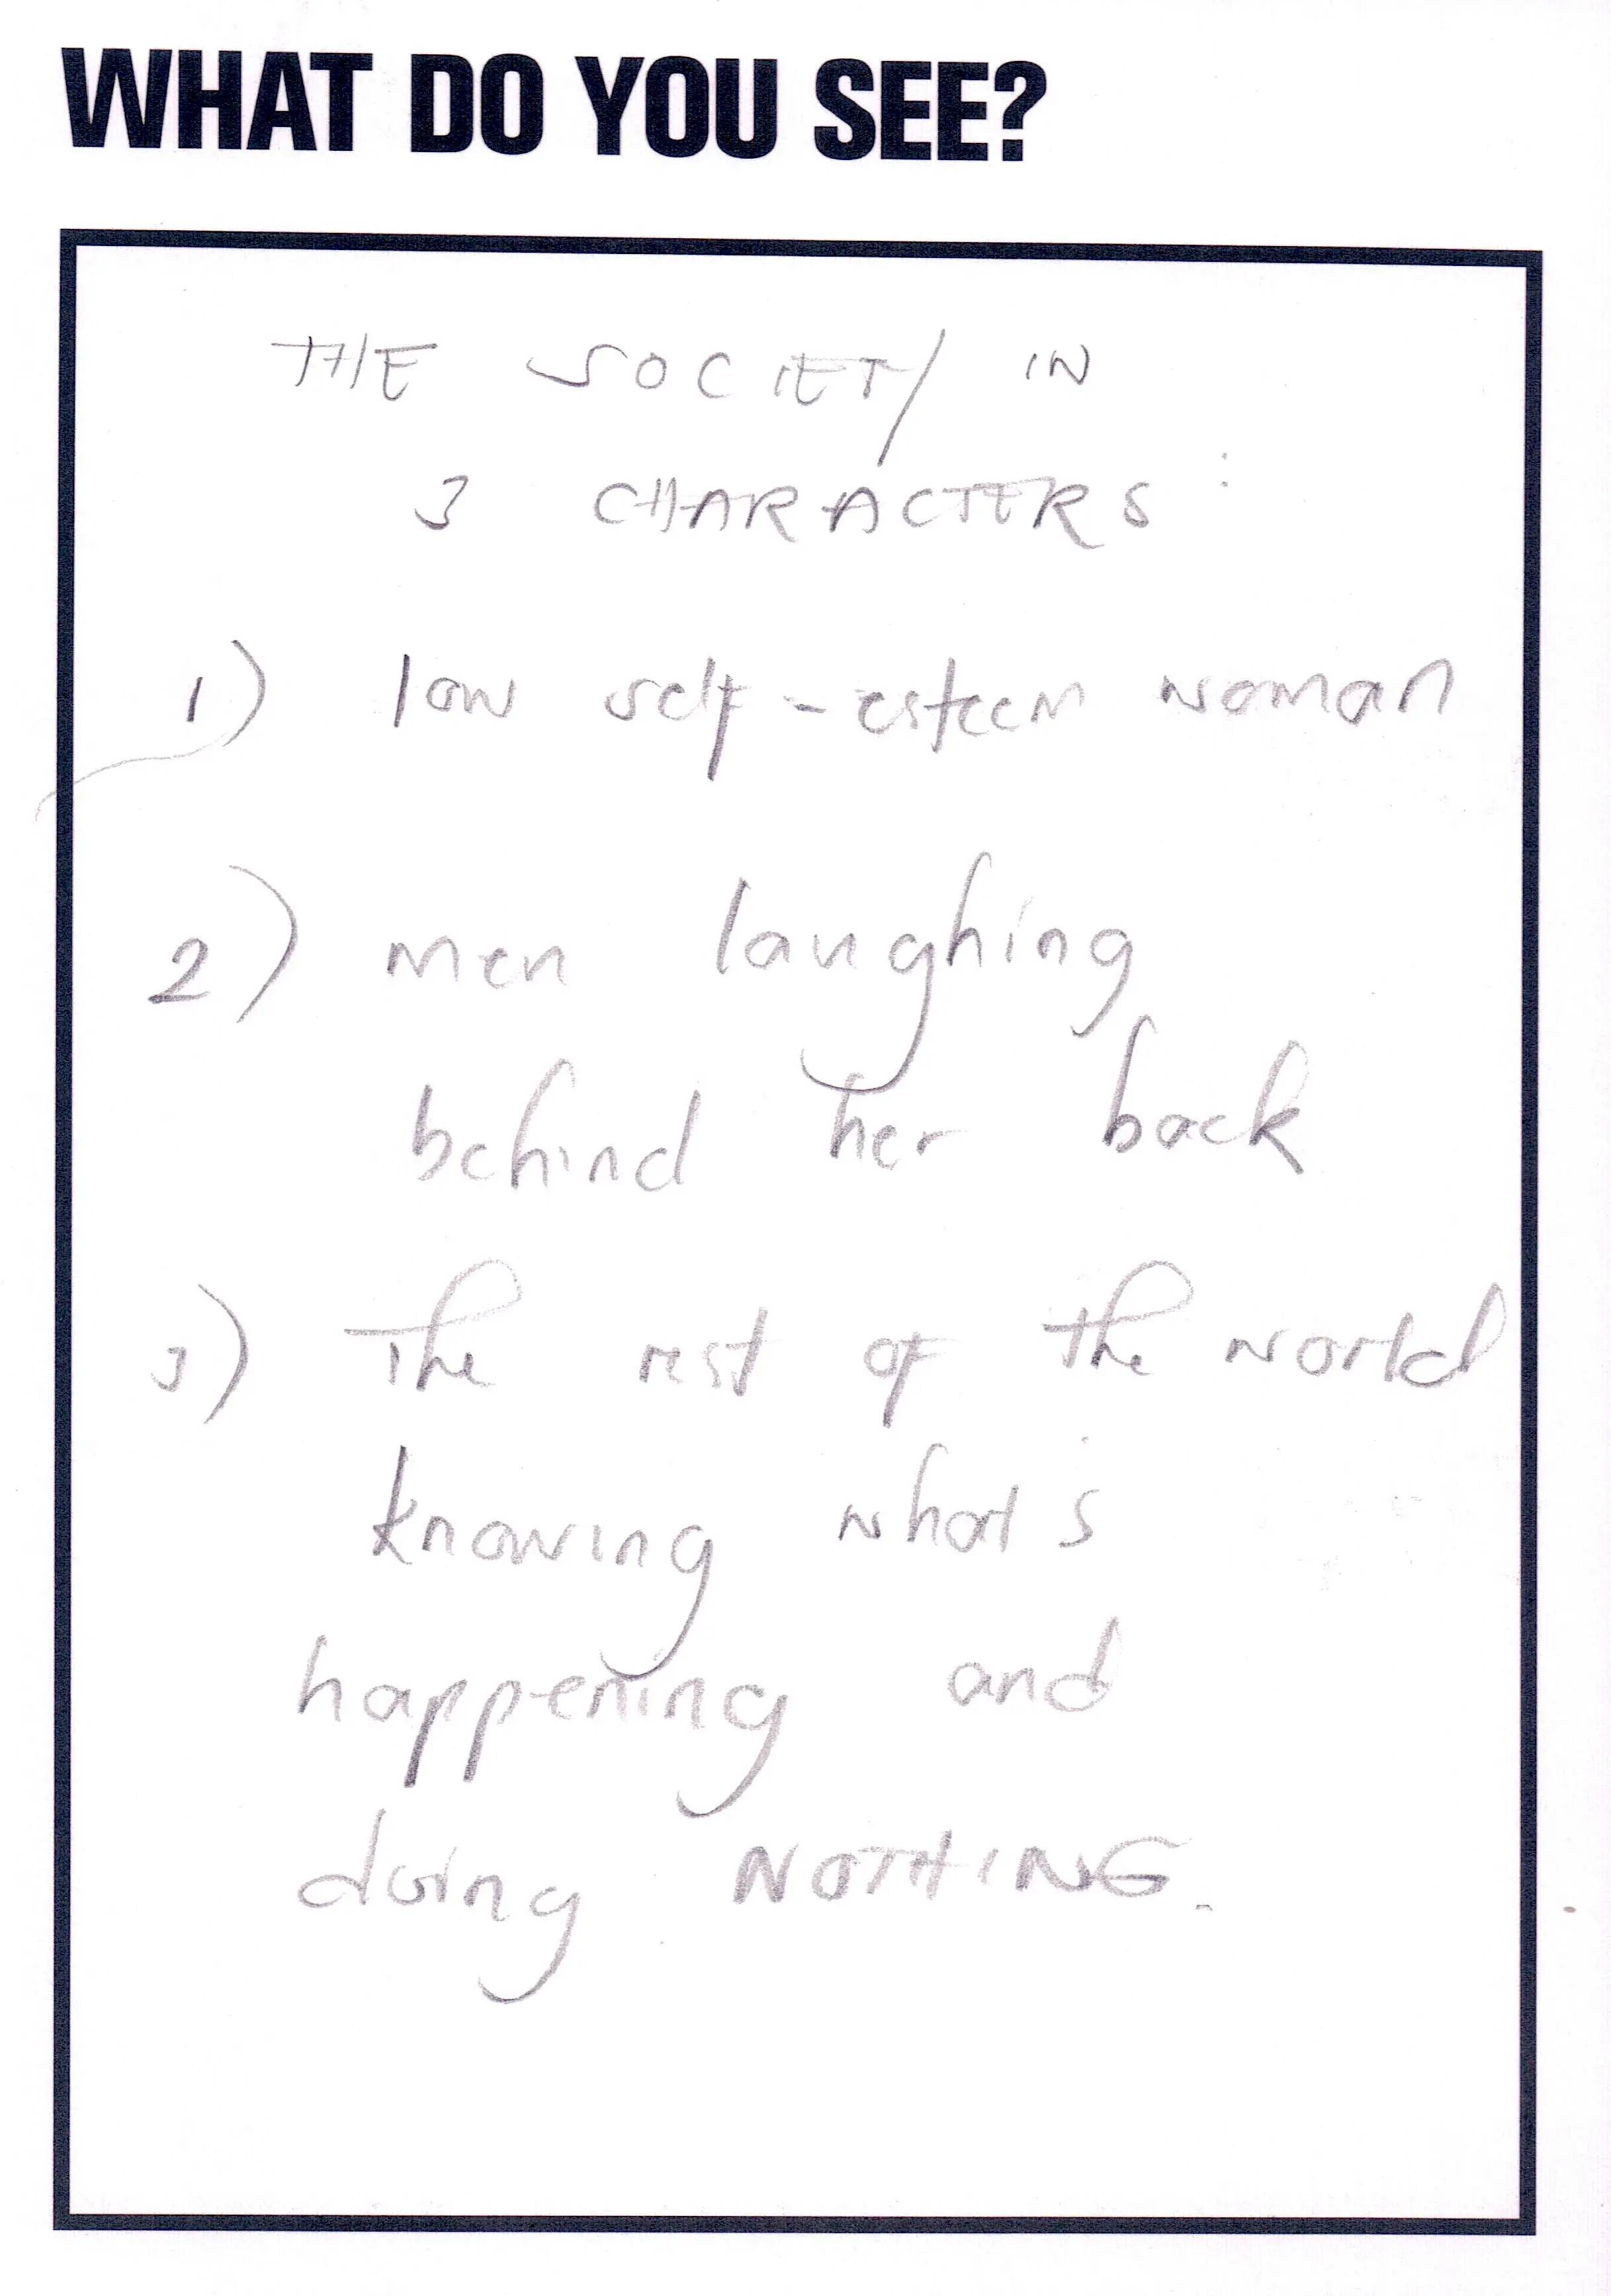 WHAT DO YOU SEE?
THE SOCIETY IN
3 CHARACTERS:
1) low self-esteem woman
2) men laughing
behind her back
3) The rest of the world
knowing what's
happening and
doing NOTHING.